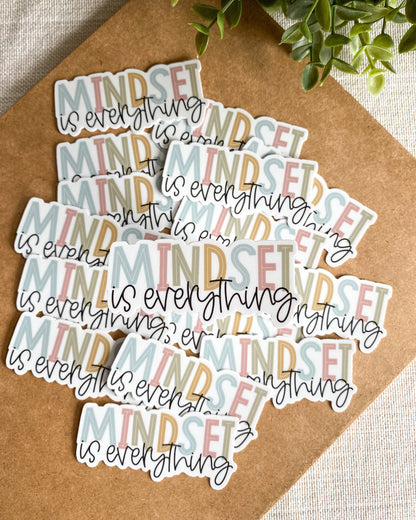 MINDSET
is everything
MINDSET
is everything
MIND
is everything
MINDSET
is everything
MIND
is everything
MIND
is everything
MINDSET
is everything
MINDSET
is everything
MINDSET
is everything